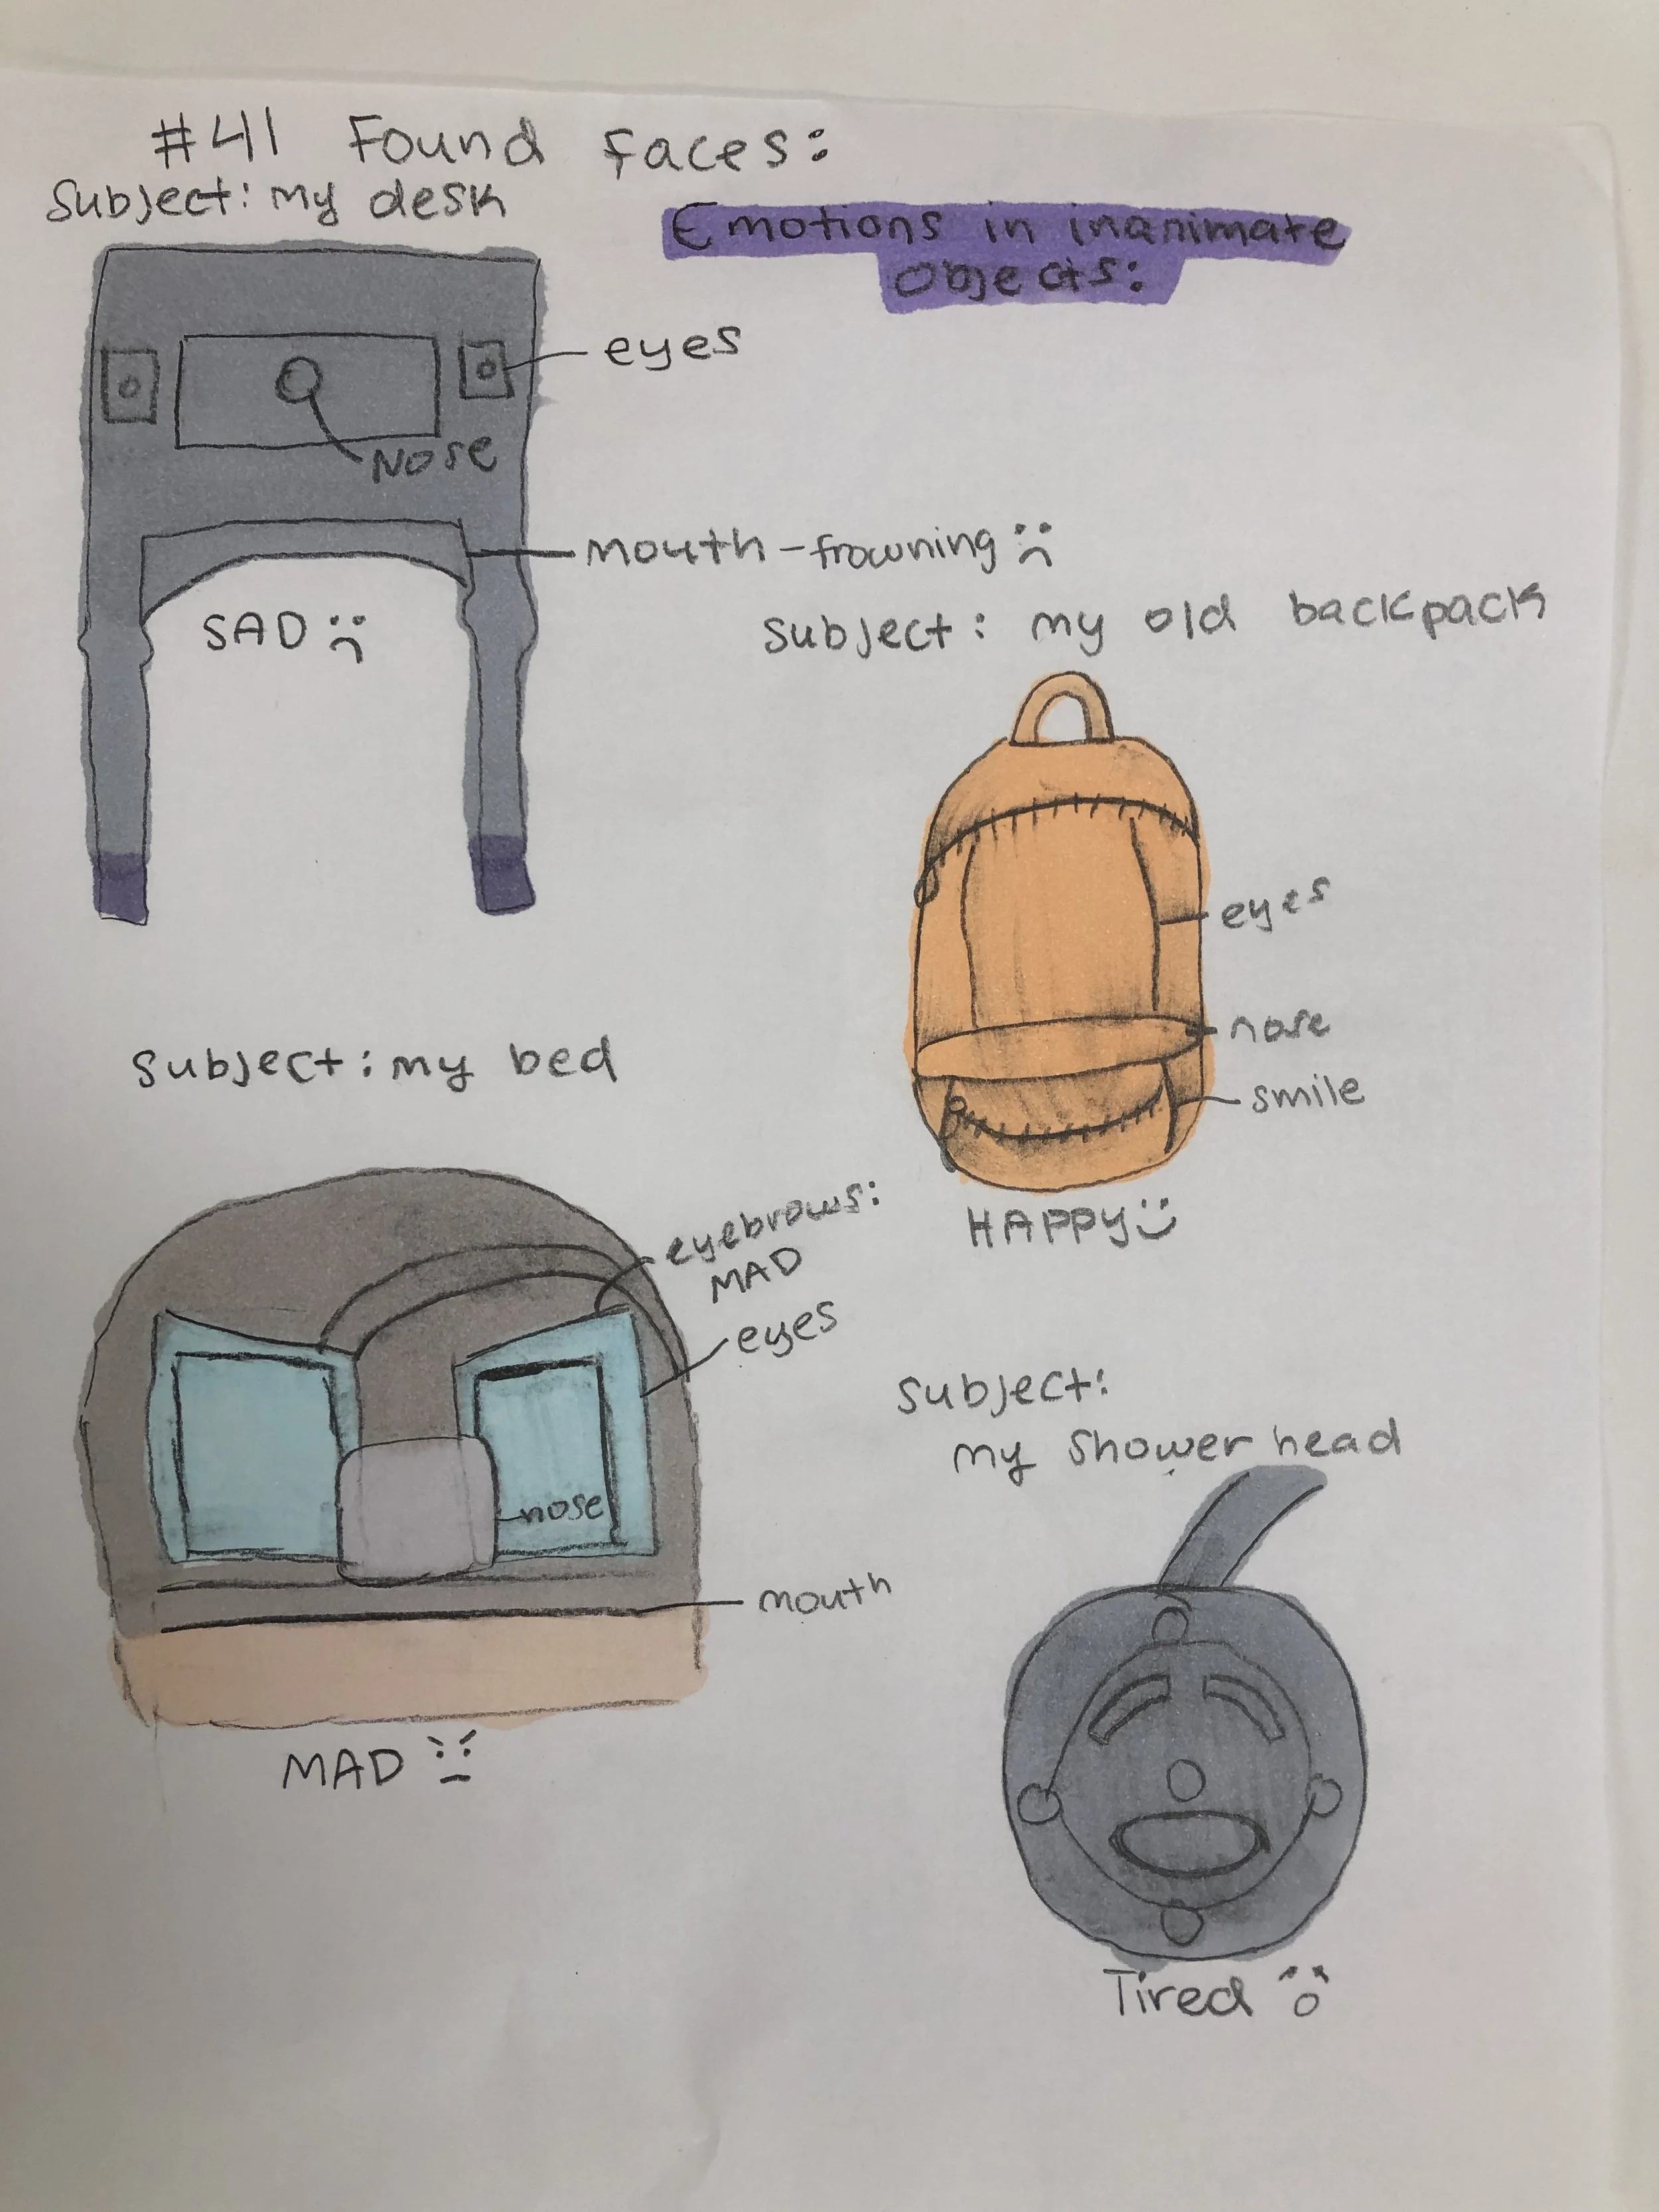 #41 Found Faces:
Subject: my desk
Emotions in inanimate
Objects:
eyes
Nose
mouth-frowning
SAD
Subject: my old backpack
eyes
nose
smile
HAPPY
Subject: my bed
eyebrows:
MAD
eyes
nose
mouth
MAD
Subject:
my shower head
Tired